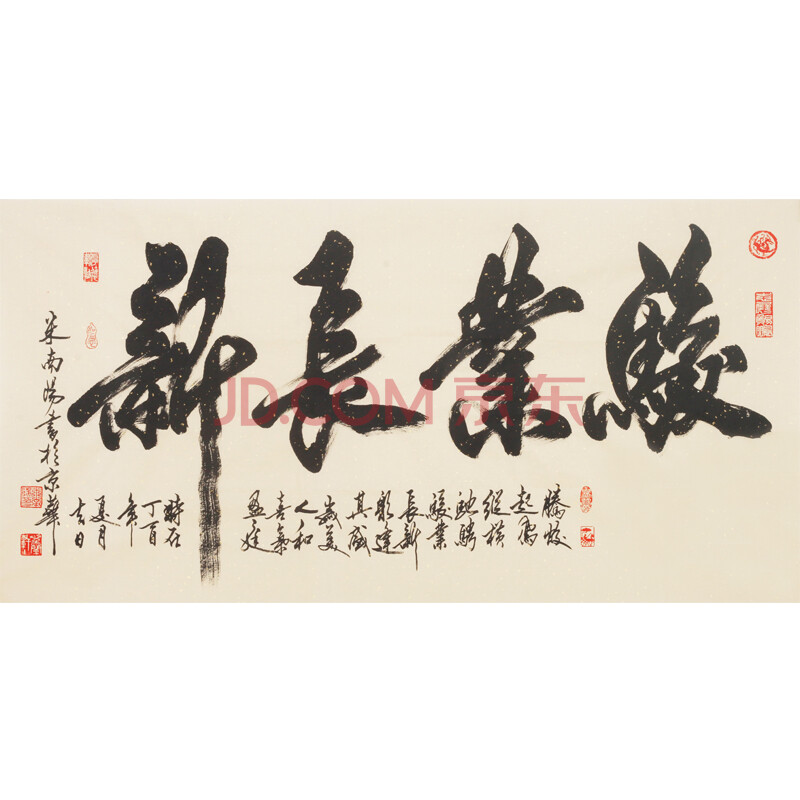 駿業長新
騰蛟
起鳳
縱橫
馳騁
駿業
長新
其盛
歲美
人和
喜氣
盈庭
時在
丁酉
年
夏月
吉日
米南陽書於京華
JD.COM 京东